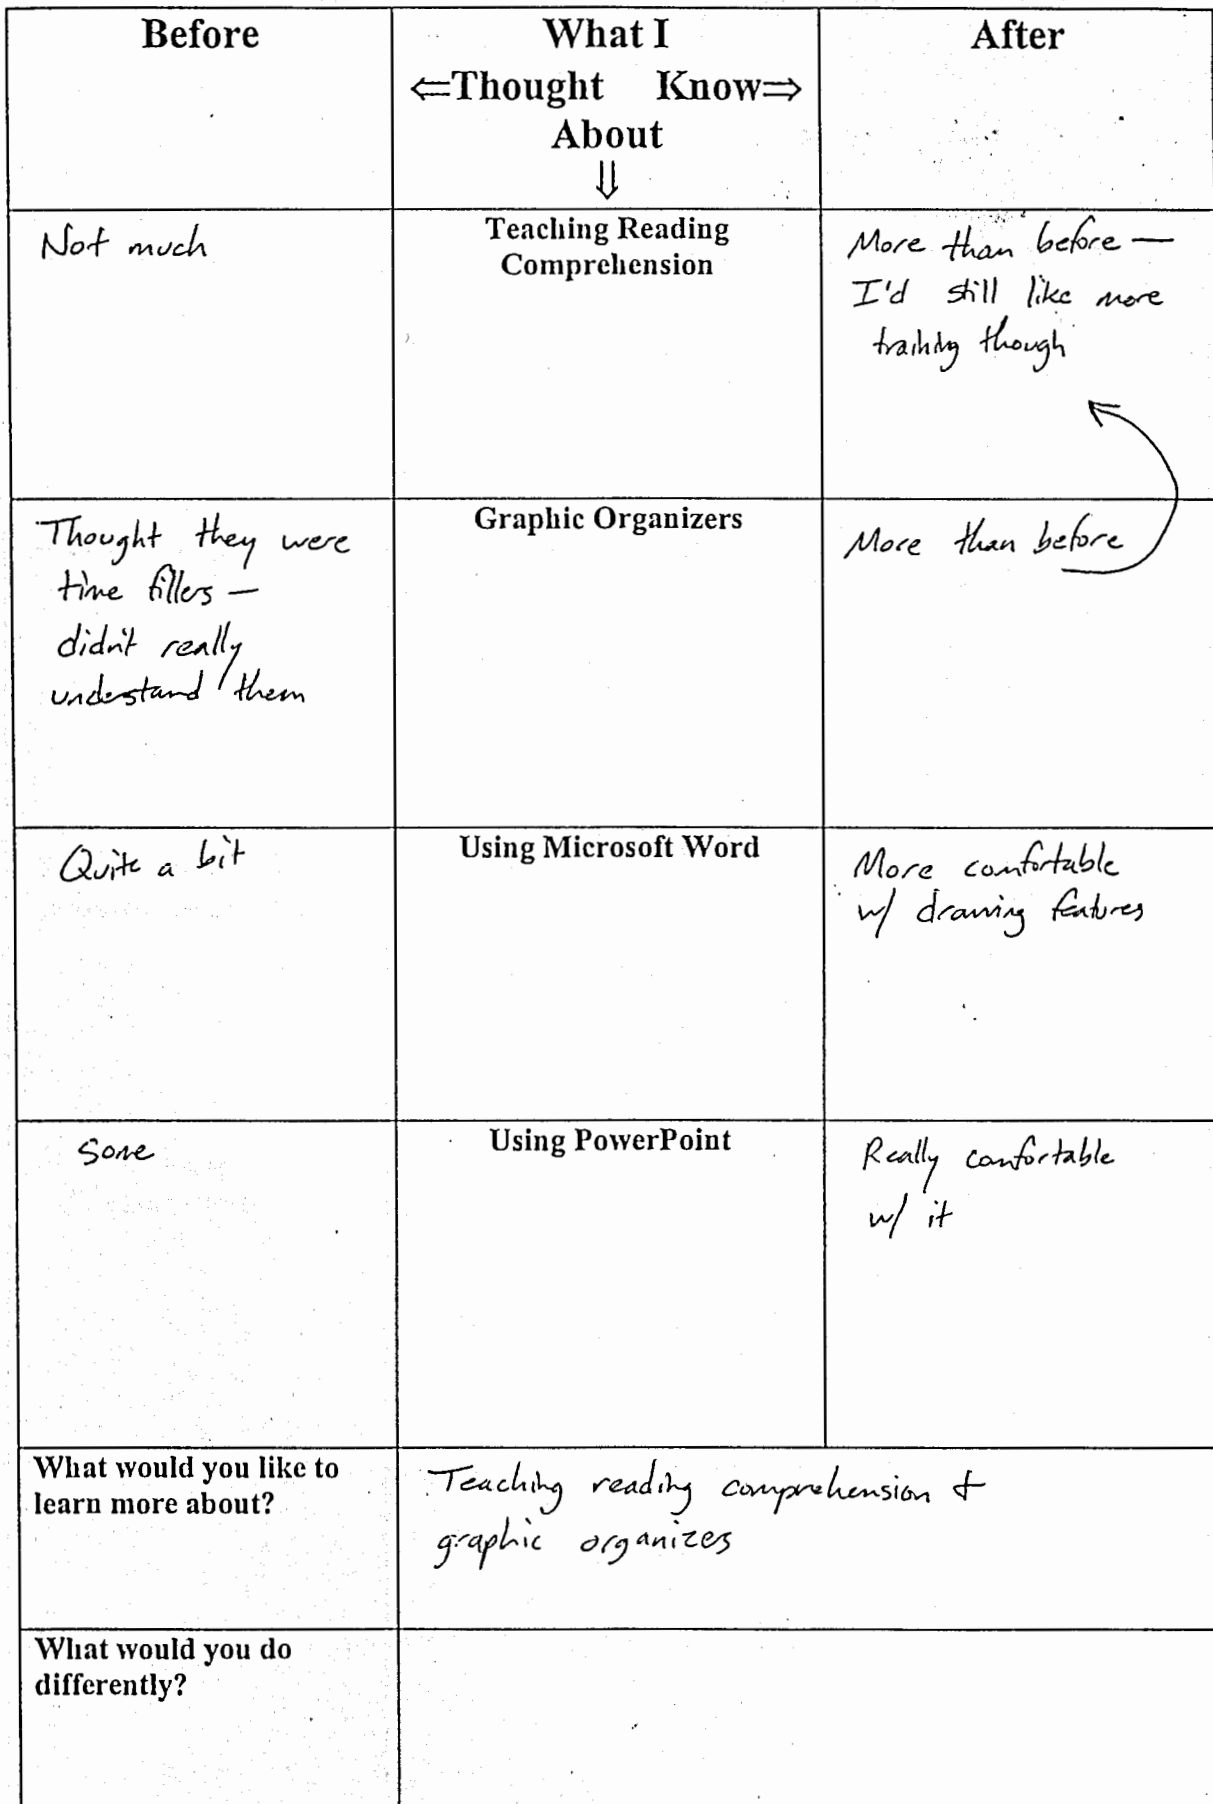 Before
What I
⇐Thought Know⇒
About
⇓
After
Not much
Teaching Reading
Comprehension
More than before —
I'd still like more
training though
Thought they were
time fillers —
didn't really
understand them
Graphic Organizers
More than before
Quite a bit
Using Microsoft Word
More comfortable
w/ drawing features
Some
Using PowerPoint
Really comfortable
w/ it
What would you like to
learn more about?
Teaching reading comprehension &
graphic organizes
What would you do
differently?